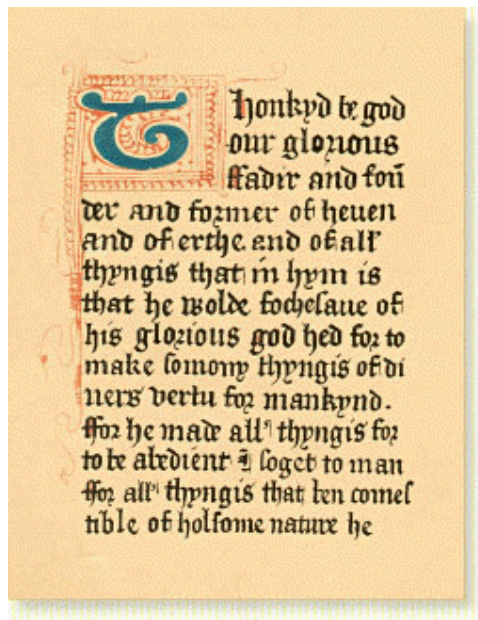 Thonkyd be god
our glorious
ffadir and foū
der and former of heuen
and of erthe and of all
thyngis that in hym is
that he wolde fochesaue of
his glorious god hed for to
make somony thyngis of di
uers vertu for mankynd.
ffor he made all thyngis for
to be abedient & soget to man
ffor all thyngis that ben comes
tible of holsome nature he